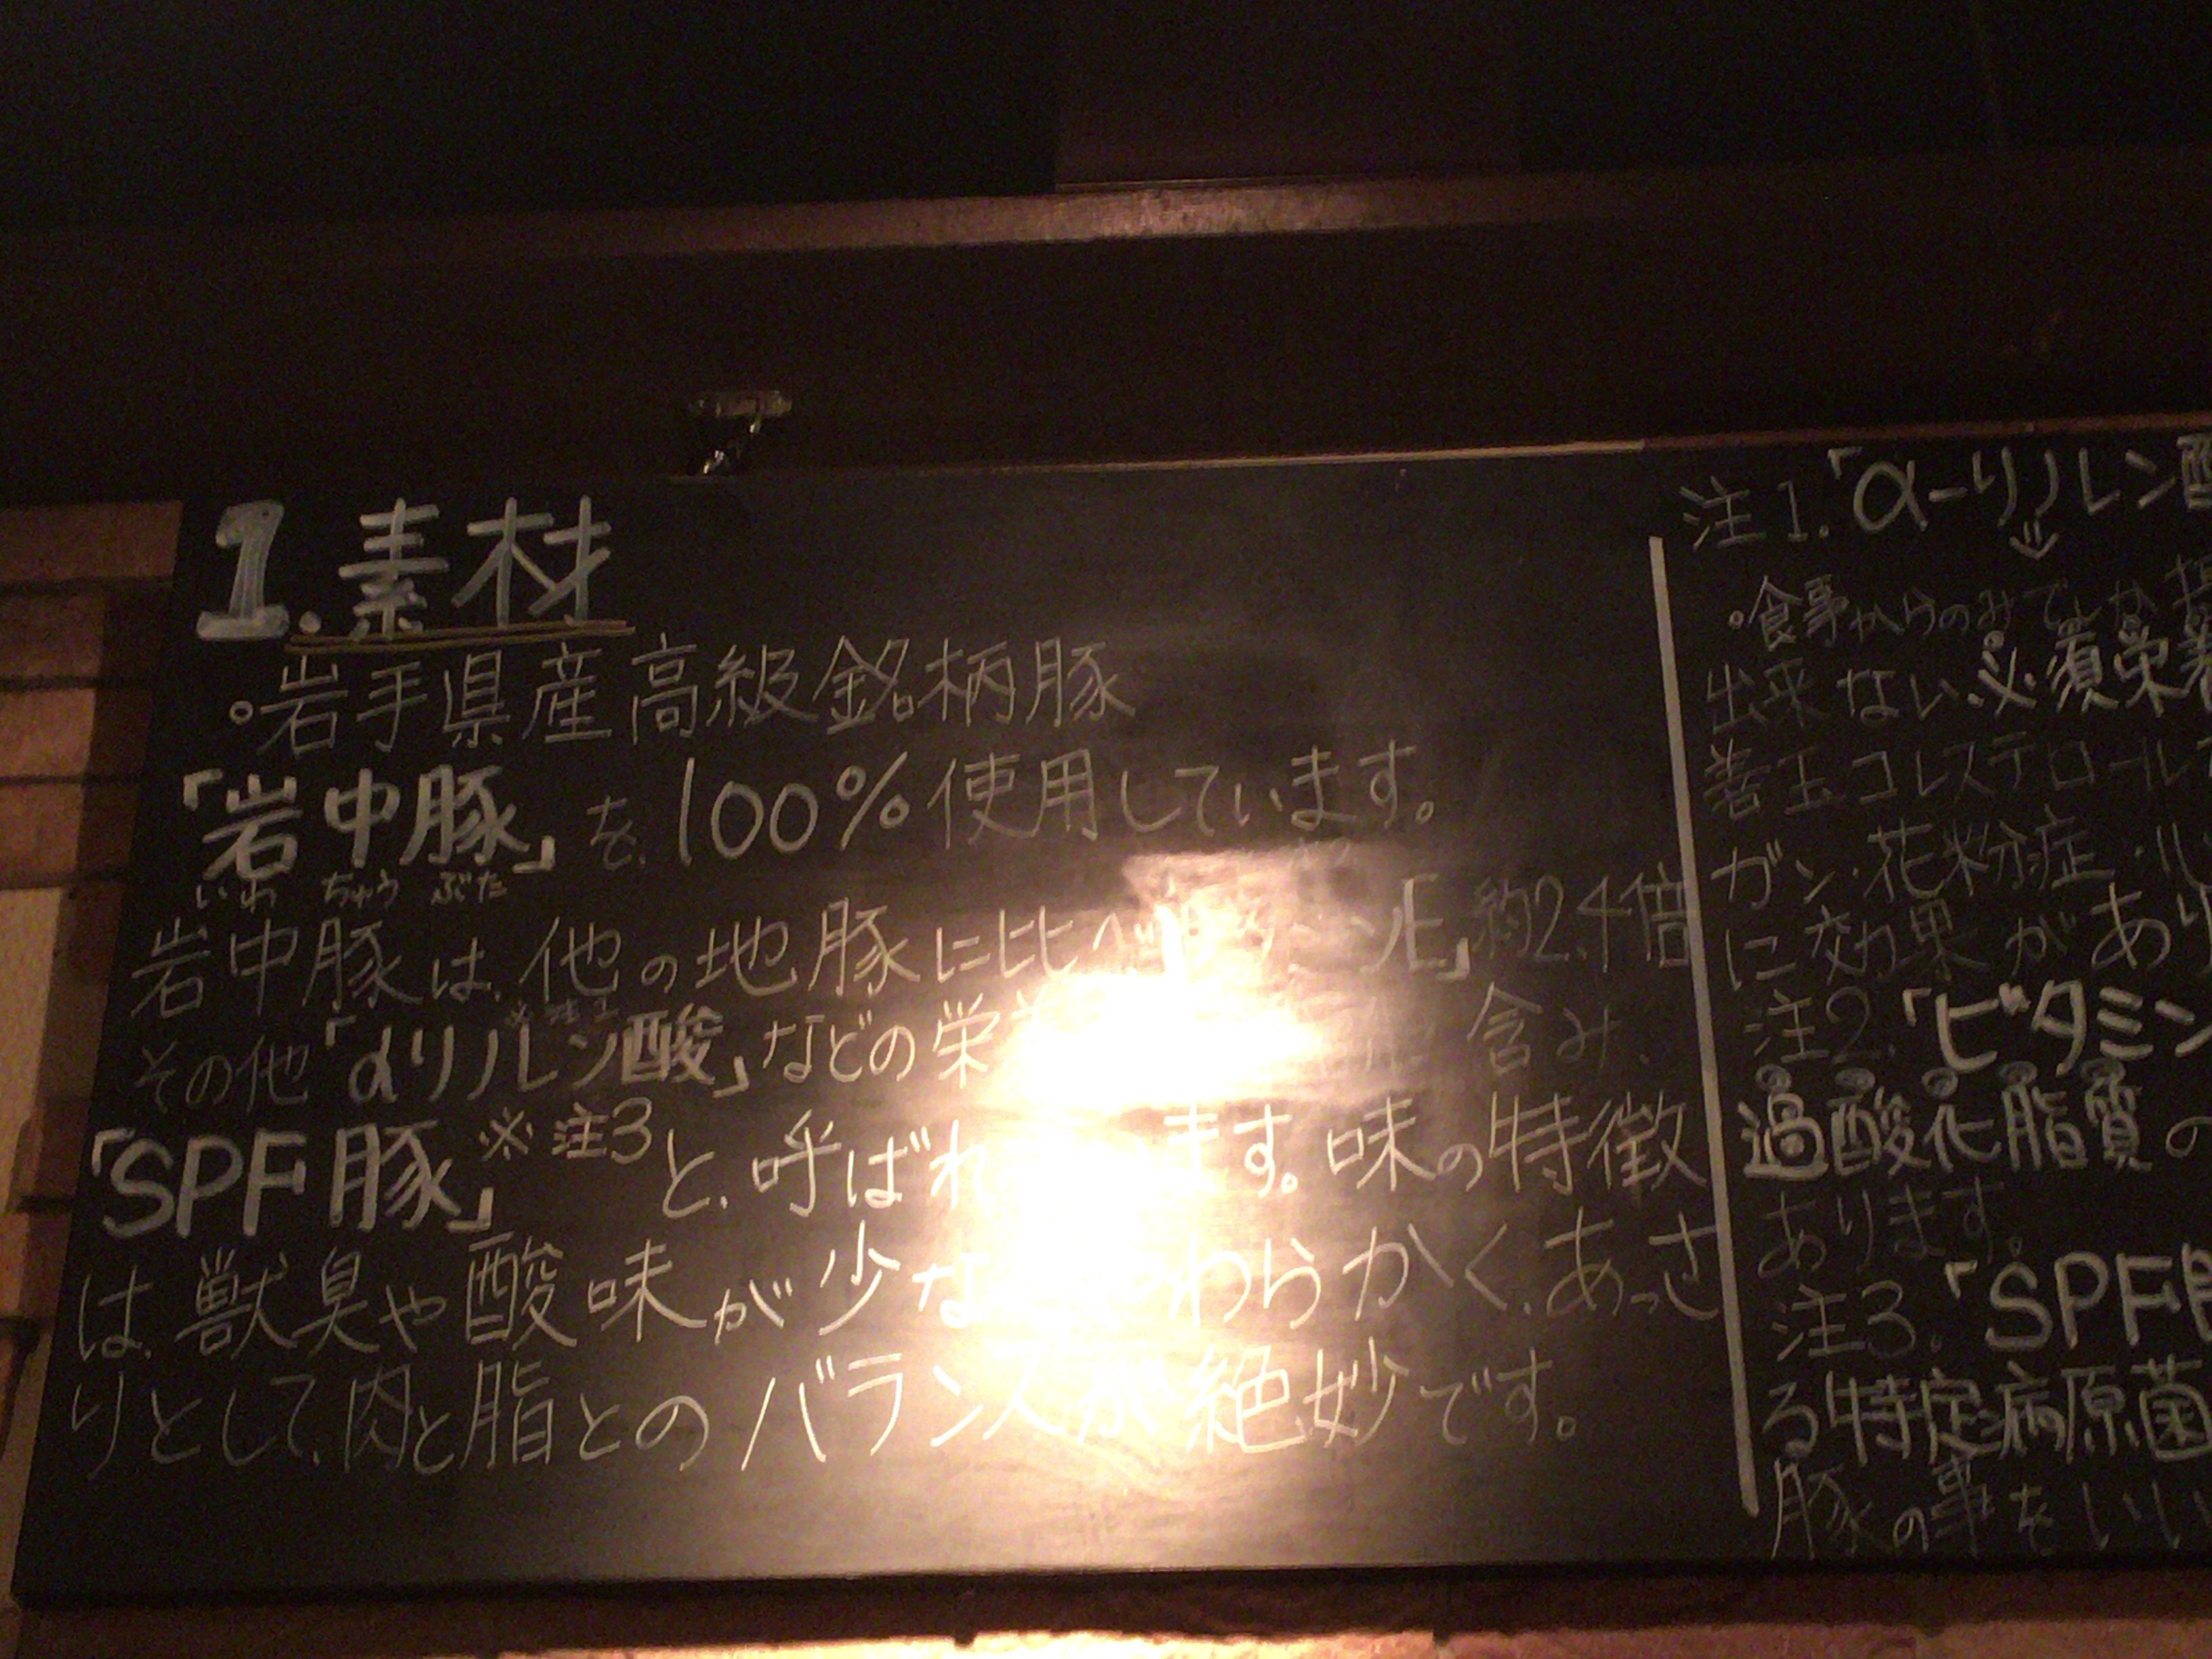 1.素材
。岩手県産高級銘柄豚
「岩中豚」を、100%使用しています。
いわ ちゅう ぶた
岩中豚は、他の地豚に比べ「 ンE」約2.4倍
その他「αリノレン酸」などの栄 含み、
「SPF豚」※注3と、呼ばれ ます。味の特徴
は、獣臭や酸味が少な わらかく、あっさ
りとして、肉と脂とのバランスが絶妙です。
注1.「α-リノレン酸
⇓
。食事からのみでしか
出来ない必須栄養
善玉コレステロール
ガン・花粉症・
に効果があり
注2.「ビタミン
過酸化脂質の
あります。
注3.「SPF
る特定病原菌
豚の事をいい